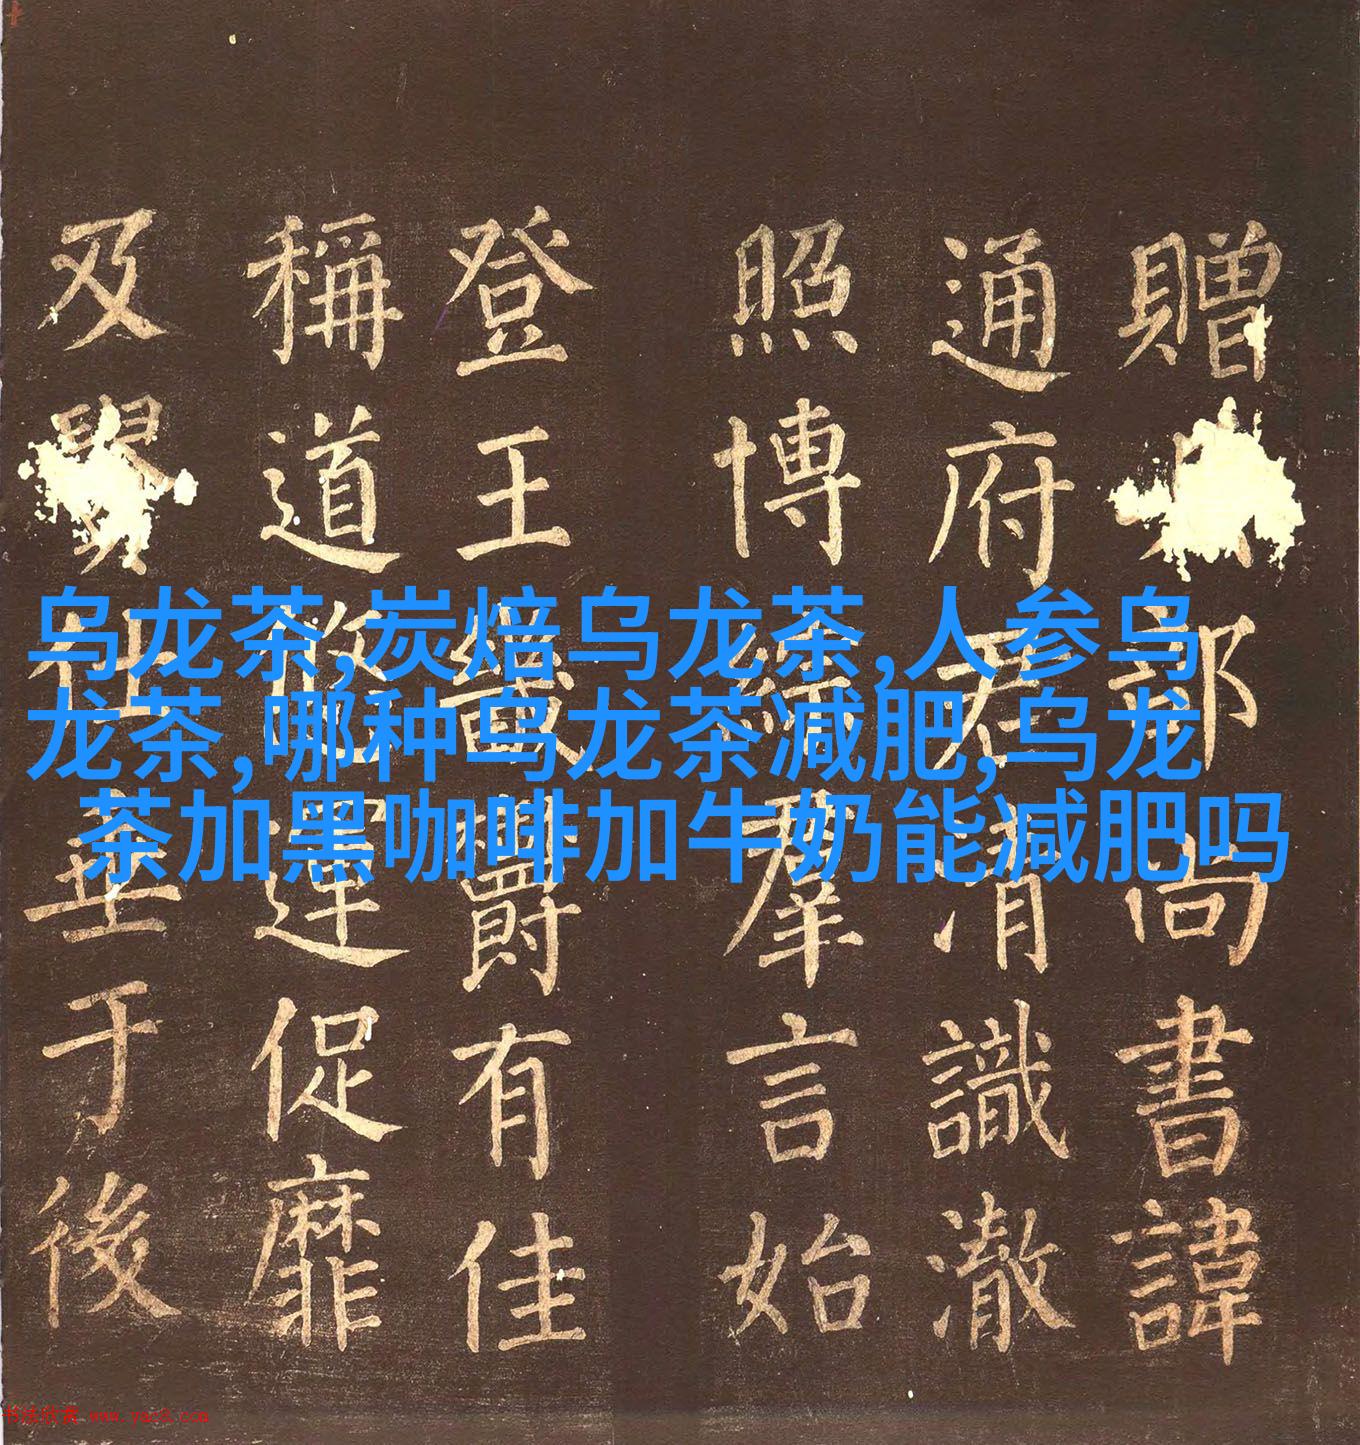 乌龙茶,炭焙乌龙茶,人参乌
龙茶,哪种乌龙茶减肥,乌龙
茶加黑咖啡加牛奶能减肥吗
贈部尚書諱
通府君清識澈
照博綜羣言始
登王畿爵有佳
稱道悠運促靡
及垂于後
书法欣赏 www.yac8.com